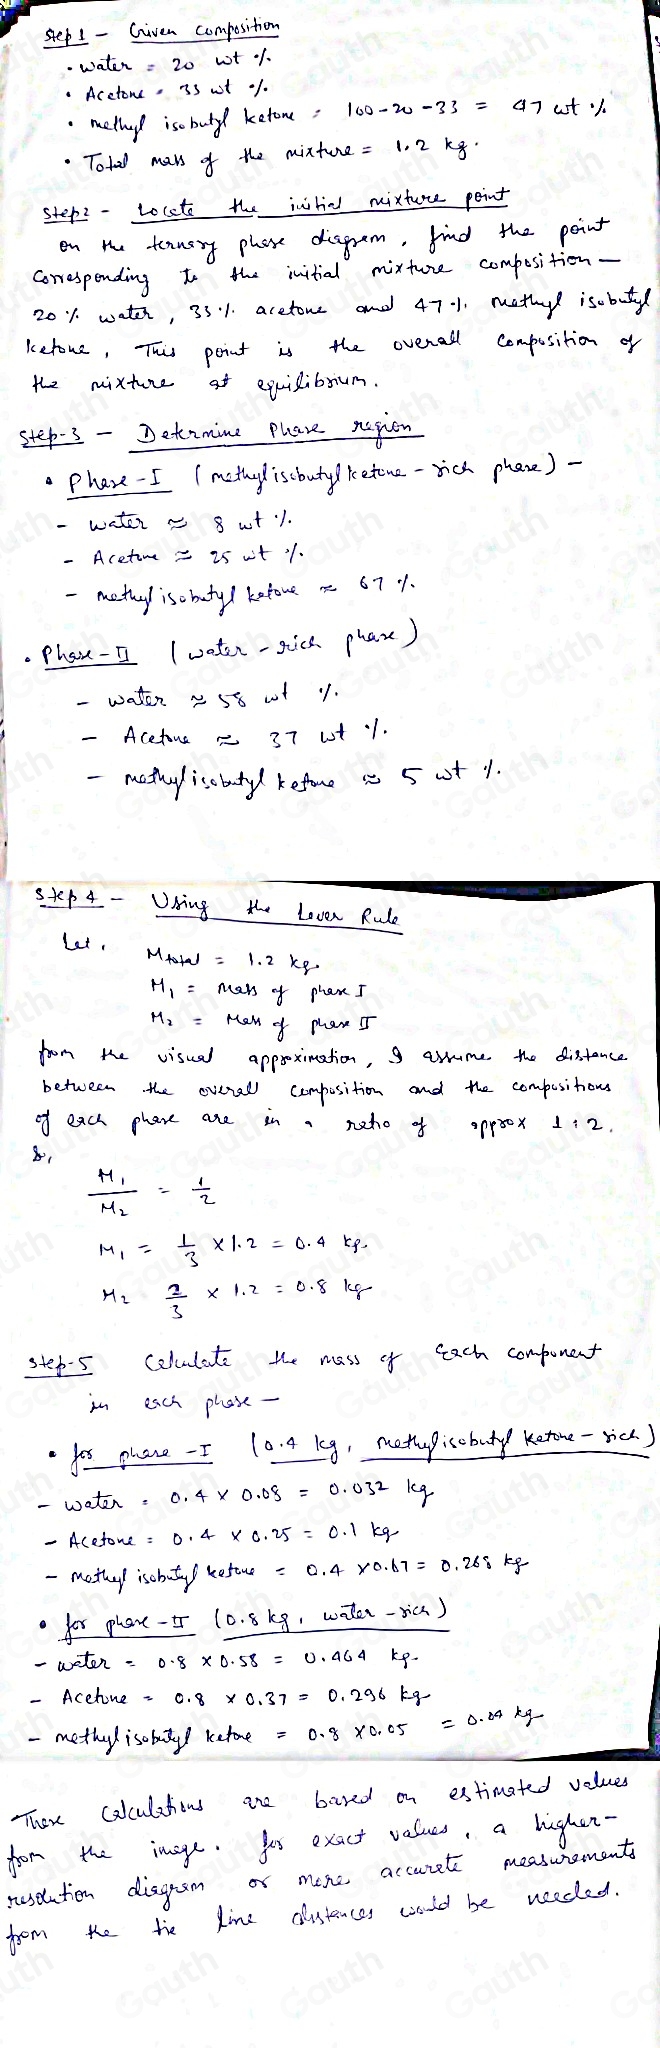 Step 1 - Given composition
• water = 20 wt %.
• Acetone = 33 wt %.
• methyl isobutyl ketone = 100-20-33 = 47 wt %
• Total mass of the mixture = 1.2 kg.
Step 2 - Locate the initial mixture point
on the ternary phase diagram, find the point
corresponding to the initial mixture composition -
20 % water, 33 % acetone and 47 % methyl isobutyl
ketone, This point is the overall composition of
the mixture at equilibrium.
Step-3 - Determine Phase region
• Phase-I (methylisobutylketone-rich phase) -
- water ≈ 8 wt %.
- Acetone ≈ 25 wt %.
- methylisobutyl ketone ≈ 67 %.
• Phase-II (water-rich phase)
- water ≈ 58 wt %.
- Acetone ≈ 37 wt %.
- methylisobutyl ketone ≈ 5 wt %.
Step 4 - Using the Lever Rule
Let, Mtotal = 1.2 kg.
M₁ = mass of phase I
M₂ = Mass of phase II
from the visual approximation, I assume the distance
between the overall composition and the compositions
of each phase are in a ratio of approx 1:2.
So,
M₁/M₂ = 1/2
M₁ = 1/3 × 1.2 = 0.4 kg.
M₂ 2/3 × 1.2 = 0.8 kg
Step-5 Calculate the mass of each component
in each phase -
• for phase-I (0.4 kg, methylisobutyl ketone-rich)
- water = 0.4 × 0.08 = 0.032 kg
- Acetone = 0.4 × 0.25 = 0.1 kg
- methyl isobutyl ketone = 0.4 × 0.67 = 0.268 kg
• for phase-II (0.8 kg, water-rich)
- water = 0.8 × 0.58 = 0.464 kg.
- Acetone = 0.8 × 0.37 = 0.296 kg
- methylisobutyl ketone = 0.8 × 0.05 = 0.04 kg
These calculations are based on estimated values
from the image. for exact values, a higher-
resolution diagram or more accurate measurements
from the tie line distances would be needed.